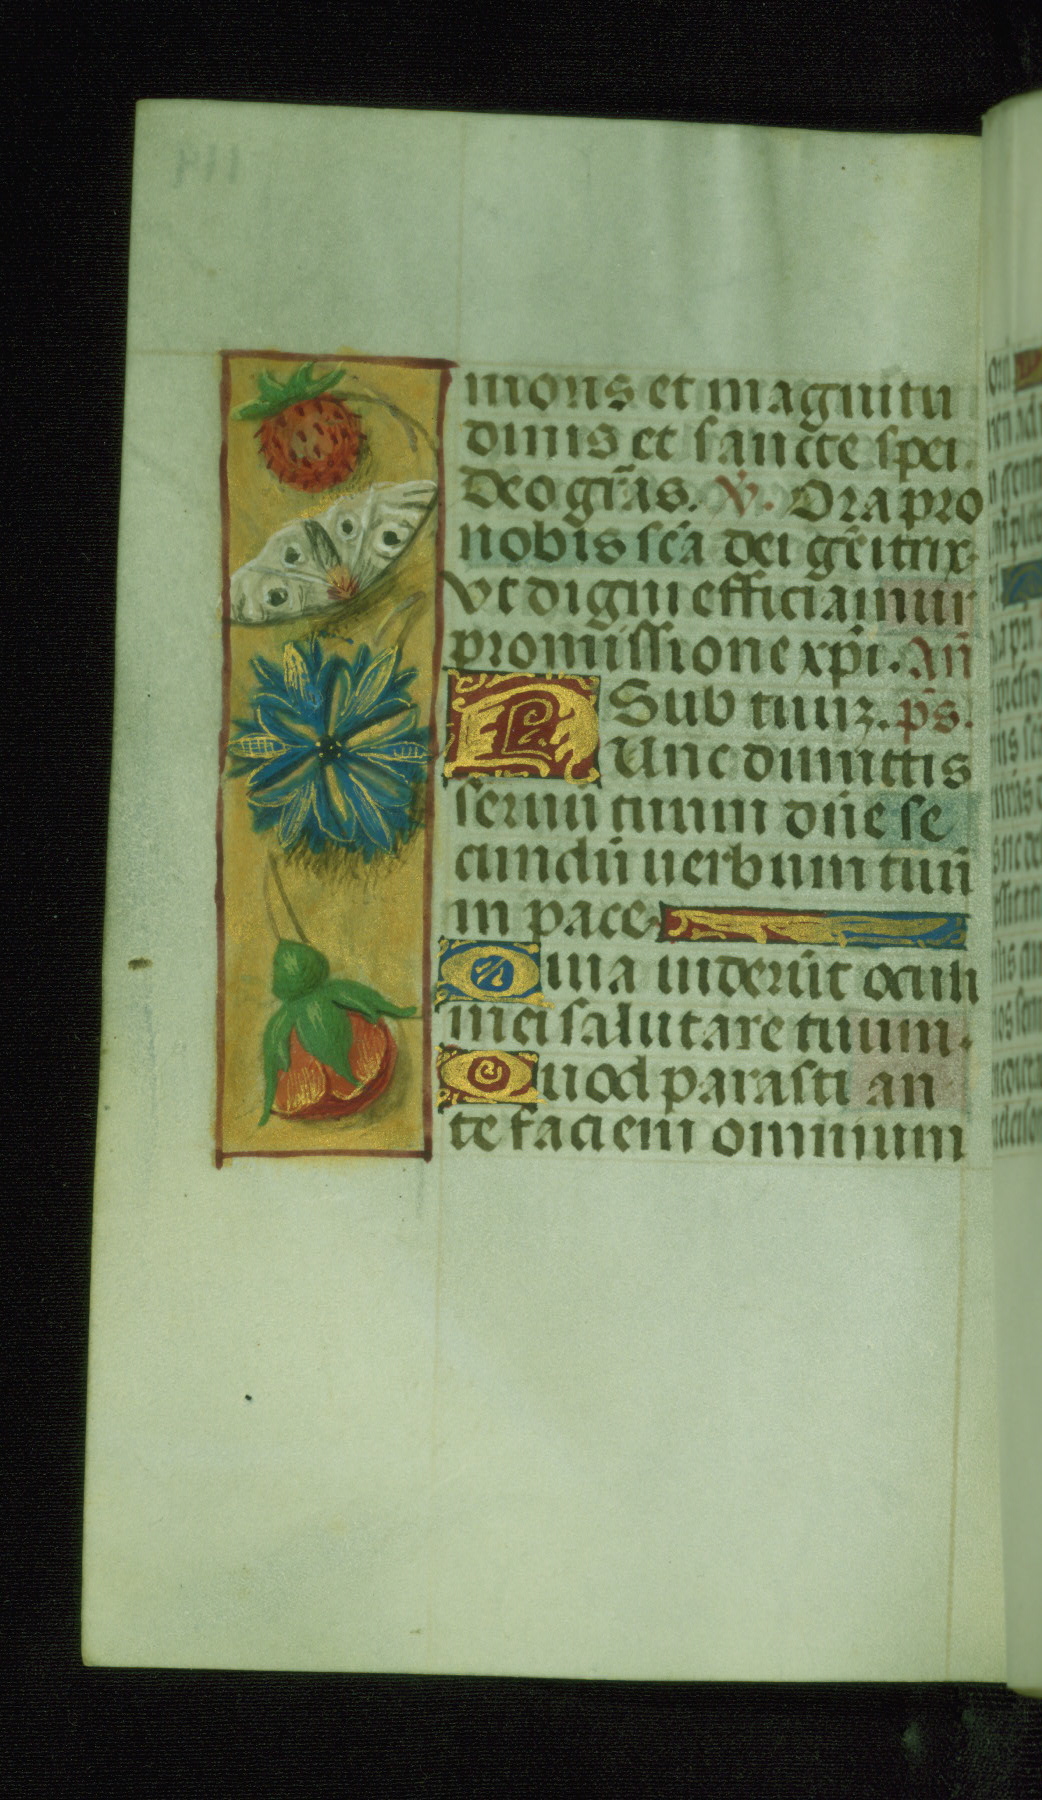 monis et magnitu
dinis et sancte spei.
Deo gr̃as. v̇. Ora pro
nobis sc̃a dei gẽitrix.
Vt digni efficiamur
promissione xp̃i. An̄
Sub tuuȝ. p̄s.
Nunc dimittis
seruū tuum dn̄e se
cundū uerbum tuū
in pace.
Quia uiderūt oculi
mei salutare tuum.
Quod parasti an
te faciem omnium